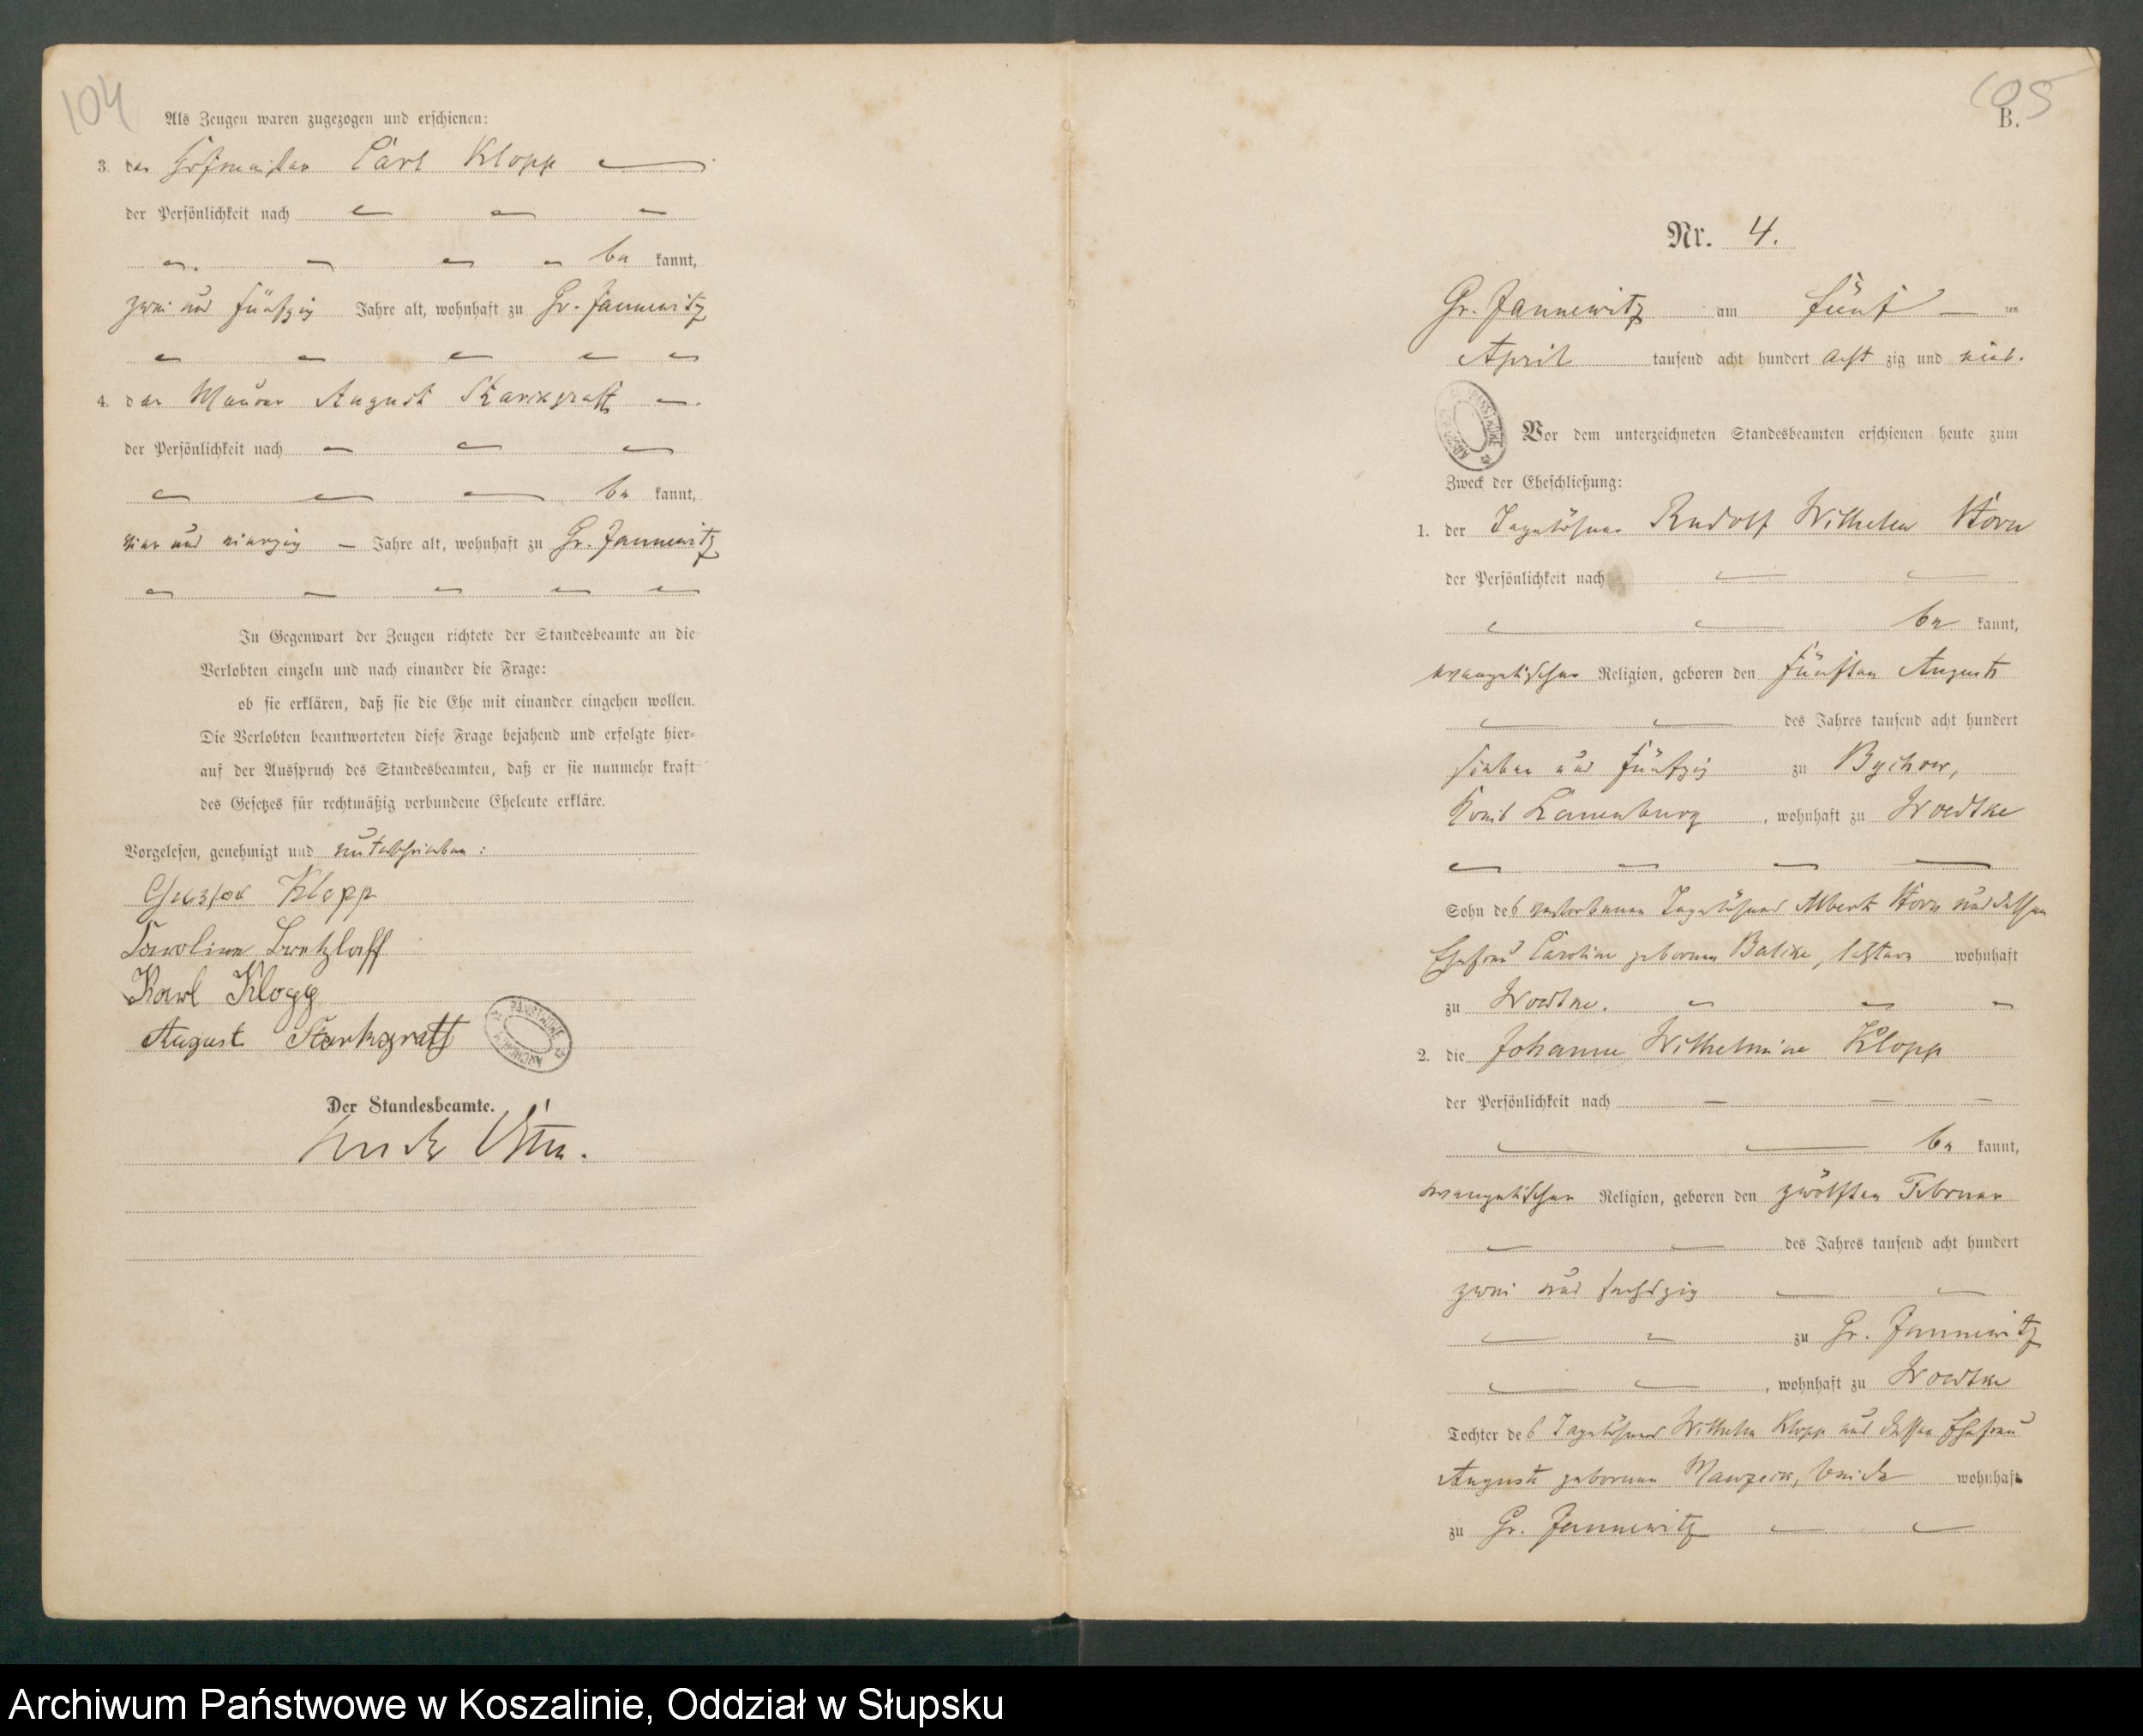 104
Als Zeugen waren zugezogen und erschienen:
3. der Hofmeister Carl Klopp
der Persönlichkeit nach
be kannt,
zwei und fünfzig Jahre alt, wohnhaft zu Gr. Jannewitz
4. der Maurer August Starkgraff
der Persönlichkeit nach
be kannt,
vier und vierzig Jahre alt, wohnhaft zu Gr. Jannewitz
In Gegenwart der Zeugen richtete der Standesbeamte an die
Verlobten einzeln und nach einander die Frage:
ob sie erklären, daß sie die Ehe mit einander eingehen wollen.
Die Verlobten beantworteten diese Frage bejahend und erfolgte hier-
auf der Ausspruch des Standesbeamten, daß er sie nunmehr kraft
des Gesetzes für rechtmäßig verbundene Eheleute erkläre.
Vorgelesen, genehmigt und unterschrieben:
Klopp
Caroline Bretzlaff
Karl Klopp
August Starkgraff
Der Standesbeamte.
105
B.
Nr. 4.
Gr. Jannewitz am fünf ten
April tausend acht hundert acht zig und
Vor dem unterzeichneten Standesbeamten erschienen heute zum
Zweck der Eheschließung:
1. der Tagelöhner Rudolf Wilhelm Korn
der Persönlichkeit nach
be kannt,
evangelischer Religion, geboren den fünften August
des Jahres tausend acht hundert
sieben und fünfzig zu Bychow,
Kreis Lauenburg, wohnhaft zu Woedtke
Sohn des verstorbenen Tagelöhners Albert Korn und dessen
Ehefrau Caroline geborenen Batike, letztere wohnhaft
zu Woedtke.
2. die Johanne Wilhelmine Klopp
der Persönlichkeit nach
be kannt,
evangelischer Religion, geboren den zwölften Februar
des Jahres tausend acht hundert
zwei und sechszig
zu Gr. Jannewitz
, wohnhaft zu Woedtke
Tochter des Tagelöhners Wilhelm Klopp und dessen Ehefrau
August geborenen beide wohnhaft
zu Gr. Jannewitz
Archiwum Państwowe w Koszalinie, Oddział w Słupsku